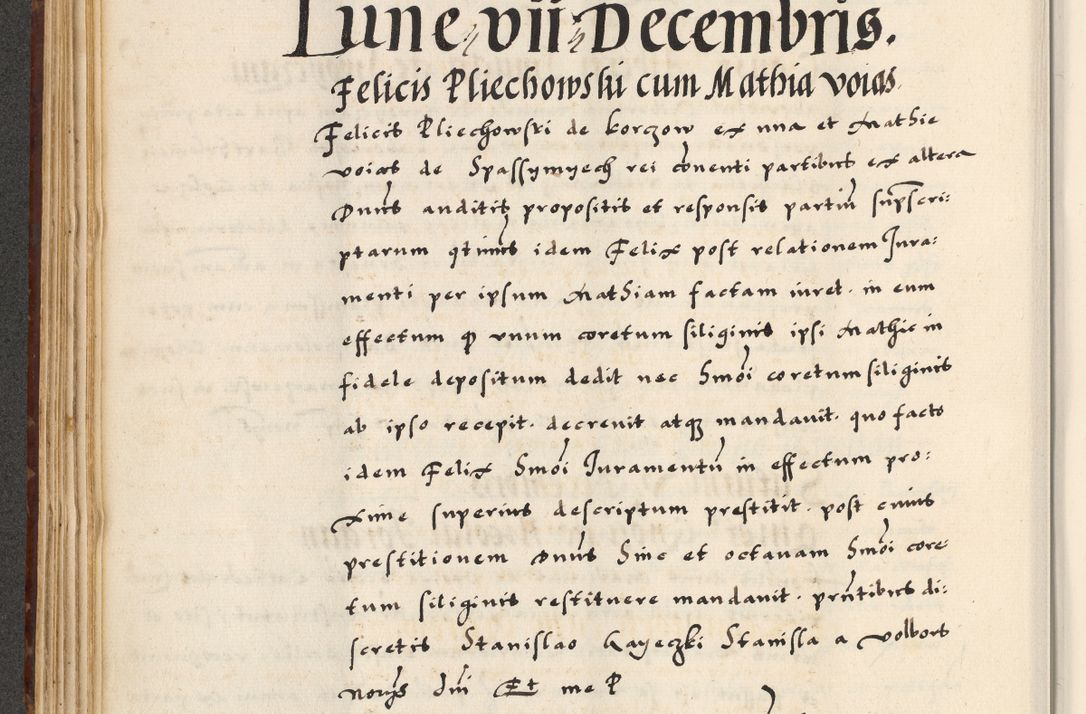 Lune vii Decembris.
Felicis Pliechowski cum Mathia voias
Felicis Pliechowski de korczow ex una et Mathie
voias de Spassymyech rei conenti partibus ex altera
Dnus auditis propositis et responsis partiu supscri:
ptarum qtinus idem Felix post relationem Jura:
menti per ipsum Mathiam factam iuret. in eum
effectum q unum coretum siliginis ipsi Mathie in
fidele depositum dedit nec Hmoi coretum siliginis
ab ipso recepit. decrevit atq mandavit. quo facto
idem Felix Hmoi Juramentu in effectum pro:
xime superius descriptum prestitit. post cuius
prestitionem Dnus Hinc et octavam Hmoi core:
tum siliginis restituere mandavit. pntibus di:
scretis Stanislao Gayeczki Stanisla a volbors
Norys dni Et me P